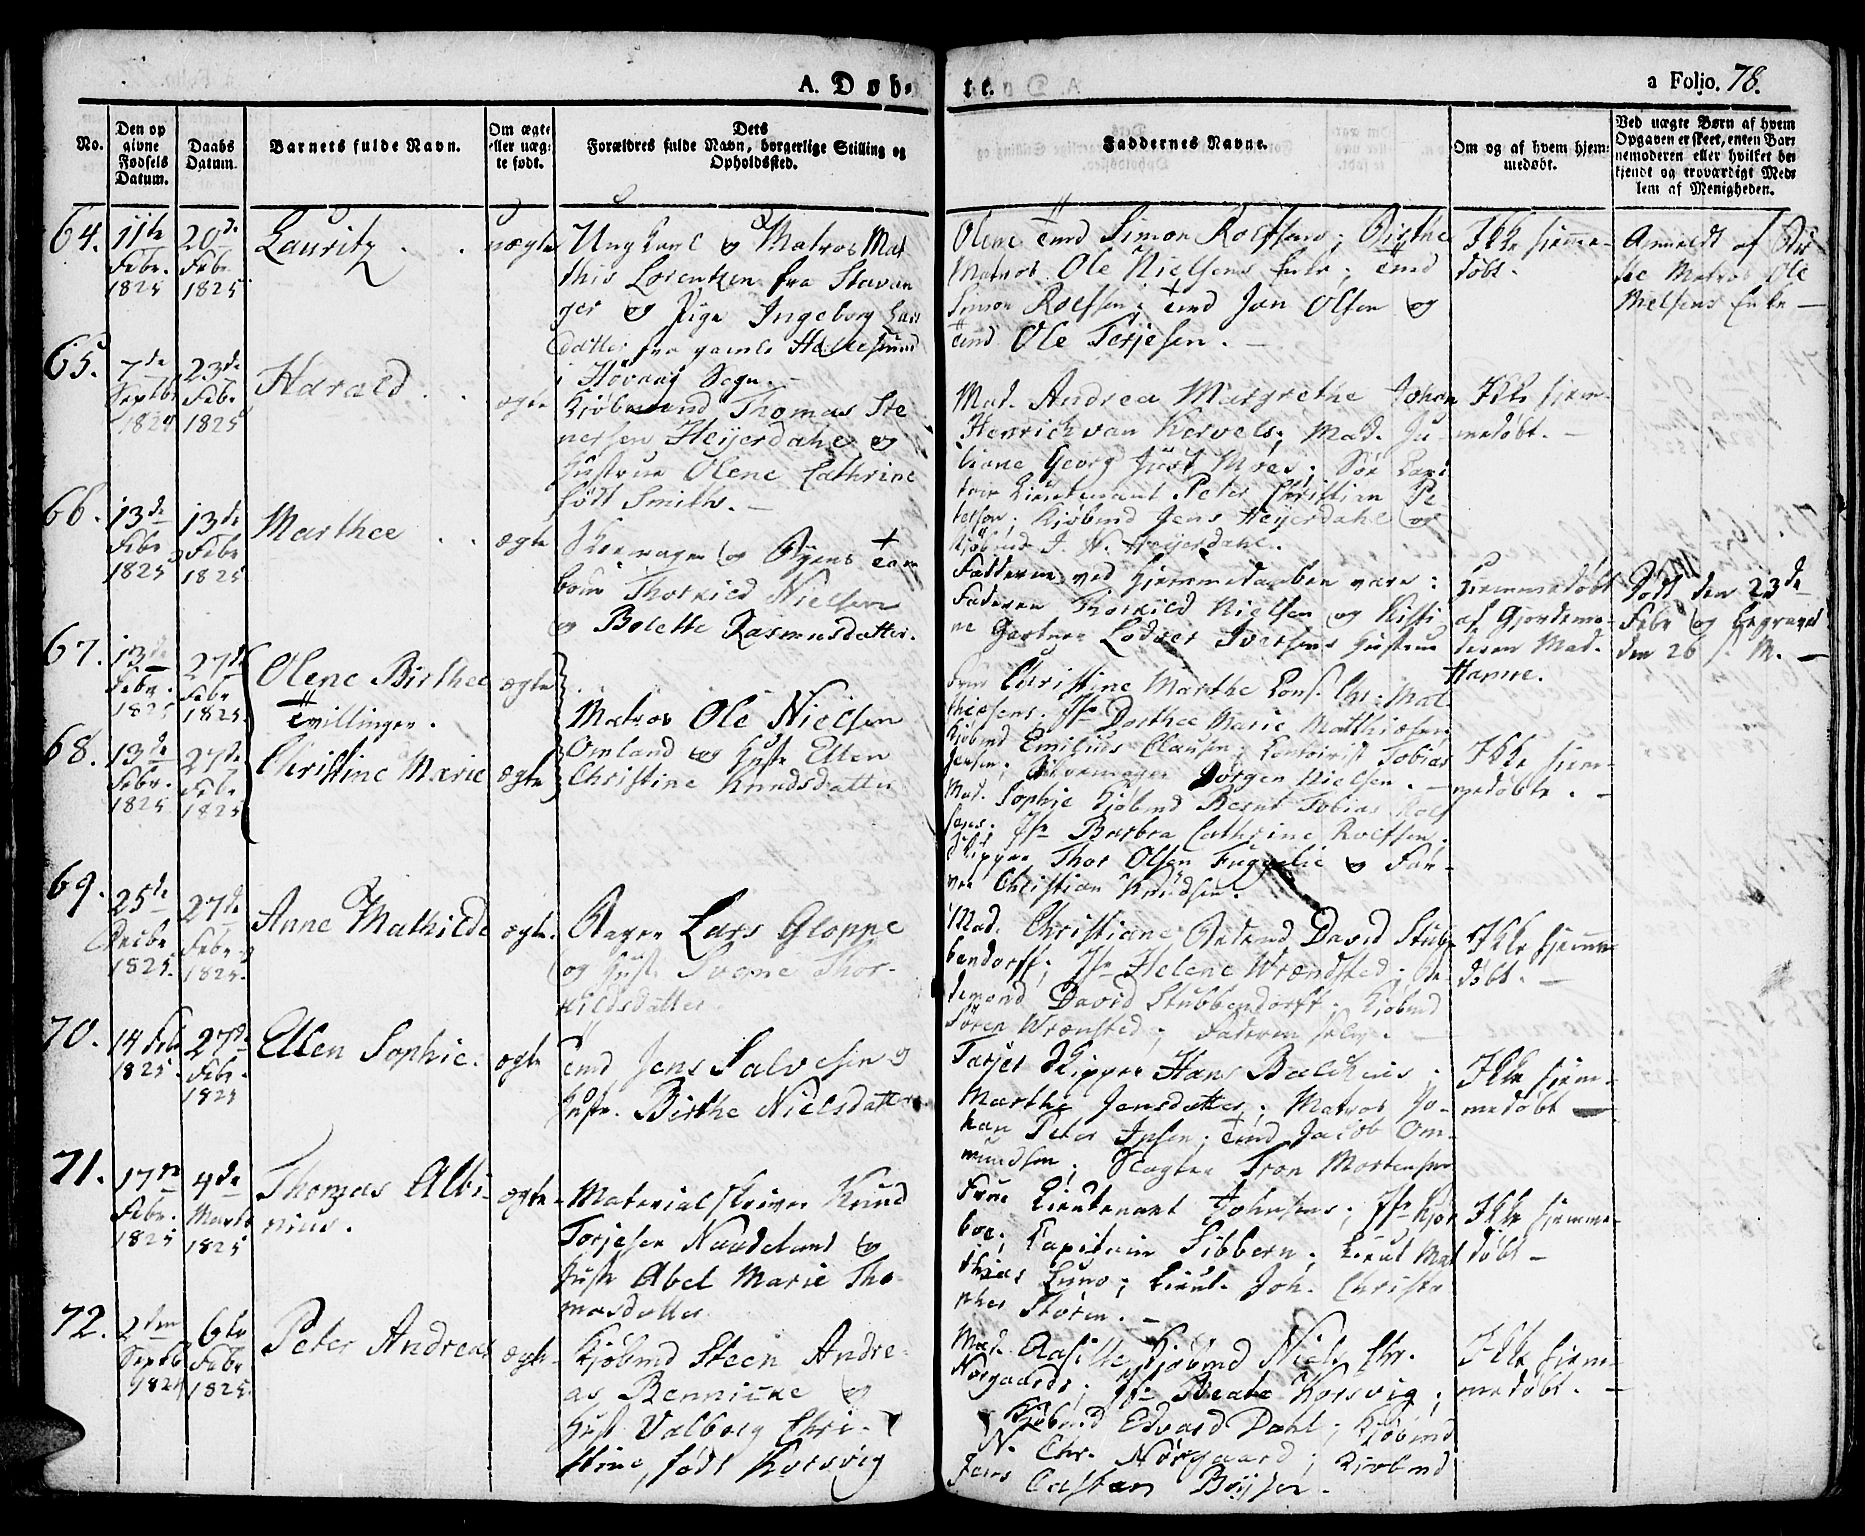 A. Døb-
te.
a Folio. 78.
No.
Den op
givne
Fødsels
Datum.
Daabs
Datum.
Barnets fulde Navn.
Om ægte
eller uæg-
te født.
Dets
Forældres fulde Navn, borgerlige Stilling og
Opholdssted.
Faddernes Navne.
Om og af hvem hjem-
medøbt.
Ved uægte Børn af hvem
Opgaven er skeet, enten Bar-
nemoderen eller hvilket be-
kjendt og troværdigt Med-
lem af Menigheden.
64.
11te
Febr.
1825
20de
Febr
1825
Lauritz
uægte
Ungkarl og Matros Mat
this Lorentzen fra Stavan
ger og Pige Ingeborg Lars
datter fra gamle Hellesund
i Høvaag Sogn.
Olene Tmd Simon Roelfsens; Birthe
Matros Ole Nielsens Enke; Tmd
Simon Roelfsen; Tmd Jan Olsen og
Tmd Ole Terjesen.
Ikke hjemme-
døbt.
Anmeldt af Bir
the Matros Ole
Nielsens Enke
65.
7de
Septbr
1824
23de
Febr
1825
Harald
ægte
Kjøbmand Thomas Ste
nersen Heyerdahl og
Hustrue Olene Cathrine
født Smith.
Mad. Andrea Margrethe Johan
Henrich van Kervels; Mad. Ju-
liane Georg Just Moes; Søe Capi
tain Lieutenant Peter Christian Pe
tersen; Kjøbmd Jens Heyerdahl og
Kjøbmd J. N. Heyerdahl.
Ikke hjem-
medøbt.
66.
13de
Febr
1825
13de
Febr
1825
Marthea
ægte
og Byens Tam
bour Thorkild Nielsen
og Bolette Rasmusdatter.
Fadderne ved Hjemmedaaben vare:
Faderen Thorkild Nielsen og Kisti
ne Gartner Lodver Iversens Hustrue
Hjemmedøbt
af Gjordemo-
deren Mad.
Hanne.
Død den 23de
Febr og begravet
den 26 s. M.
67.
13de
Febr.
1825
27de
Febr
1825.
Olene Birthea
Tvillinger.
ægte
Matros Ole Nielsen
Omland og Hustr Ellen
Christine Knudsdatter
Christine Marthe Cons. Chr. Mat
thiesens. Jfr Dorthea Marie Matthiesen
Kjøbmd Emilius Clausen; Contoirist Tobias
Jensen; Jørgen Nielsen.
68.
13de
Febr.
1825
27de
Febr
1825
Christine Marie
ægte
Mad. Sophie Kjøbmd Bernt Tobias Roelf
sens. Jfr Barbra Cathrine Roelfsen.
Skipper Thor Olsen Fuglelie og Far-
ver Christian Knudsen.
Ikke hjem-
medøbte.
69.
25de
Decbr
1825.
27de
Febr
1825.
Anne Mathilde
ægte.
Bager Lars Gloppe
og Hustr. Svane Thor-
kildsdatter
Mad. Christiane Rédemd David Stub
bendorff; Jfr Helene Wrændsted; Re-
demand David Stubbendorff. Kjøbmd
Søren Wrænsted; Faderen selv.
Ikke hjemme
døbt.
70.
14 Febr
1825.
27de
Febr.
1825
Ellen Sophie.
ægte
Tmd Jens Salvesen og
Hustr. Birthe Nielsdatter
Skipper Hans Balchens;
Marthe Jensdatter; Matros Jo-
han Peter Ipsen; Tmd Jacob Om-
mundsen; Slagter Tron Mortensen
Ikke hjem-
medøbt
71.
17de
Febr.
1825
4de
Marts
1825
Thomas Albi-
nius.
ægte
Materialskriver Knud
Torjesen Naadeland og
Hustr Abel Marie Tho-
masdatter
Frue Lieutenant Johnsens; Jfr Kjør
boe; Capitain Sibbern; Lieut Mat
thias Lund; Lieut. Joh. Christo
pher Støren.
Ikke hjemme-
døbt
72.
2den
Septbr
1824
6te
Febr
1825.
Peter Andreas
ægte
Kjøbmd Steen Andre-
as Bennicke og
Hustr Valborg Chri-
stine, født Korsvig
Mad. Kjøbmd Niels Chr.
Nørgaards; Jfr Beate Korsvig;
Kjøbmd Edvard Dahl; Kjøbmd
N. Chr. Nørgaard; Kjøbmd
Jens Carstan Boysen.
Ikke hjem-
medøbt.